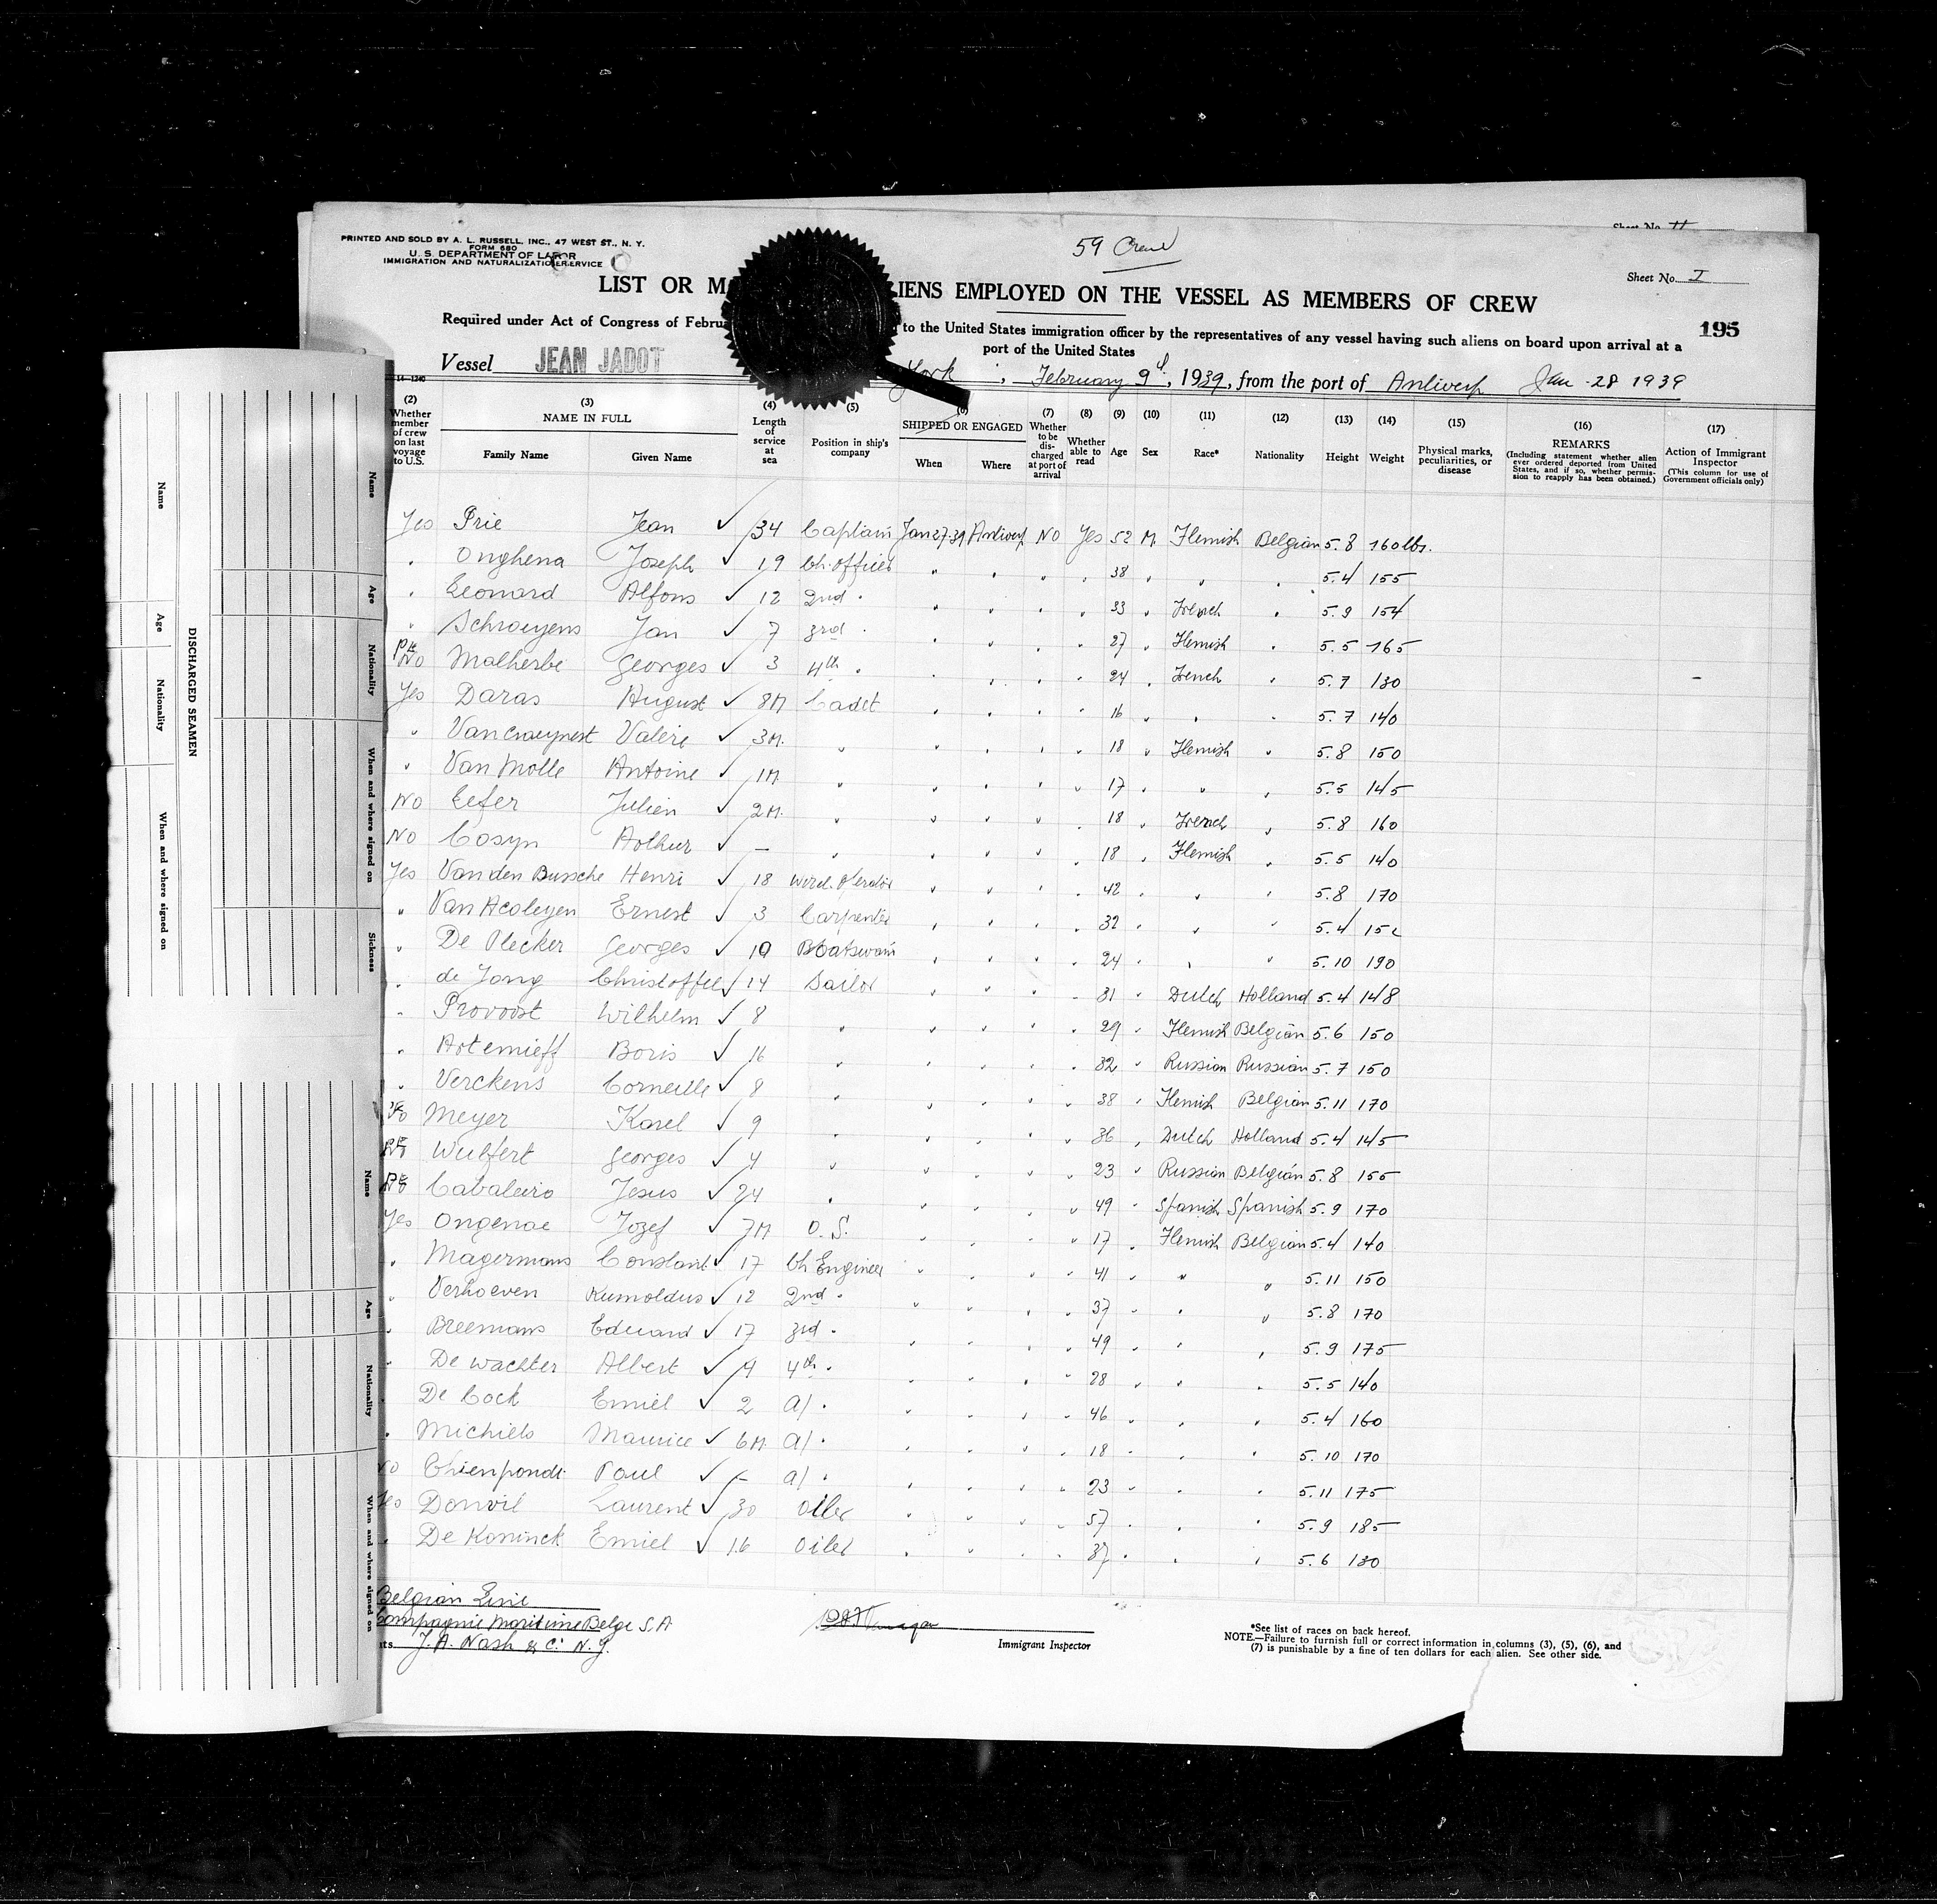 Sheet No. II
PRINTED AND SOLD BY A. L. RUSSELL, INC., 47 WEST ST., N. Y.
FORM 680
U. S. DEPARTMENT OF LABOR
IMMIGRATION AND NATURALIZATION SERVICE
59 Crew
Sheet No. I
LIST OR M LIENS EMPLOYED ON THE VESSEL AS MEMBERS OF CREW
195
Required under Act of Congress of Febru to the United States immigration officer by the representatives of any vessel having such aliens on board upon arrival at a
port of the United States
Vessel JEAN JADOT York, February 9th, 1939, from the port of Antwerp Jan. 28 1939
14-1240
(2) Whether member of crew on last voyage to U.S.
(3) NAME IN FULL
Family Name
Given Name
(4) Length of service at sea
(5) Position in ship's company
(6) SHIPPED OR ENGAGED
When
Where
(7) Whether to be discharged at port of arrival
(8) Whether able to read
(9) Age
(10) Sex
(11) Race*
(12) Nationality
(13) Height
(14) Weight
(15) Physical marks, peculiarities, or disease
(16) REMARKS
(Including statement whether alien ever ordered deported from United States, and if so, whether permission to reapply has been obtained.)
(17) Action of Immigrant Inspector
(This column for use of Government officials only)
Yes Prie Jean ✓ 34 Captain Jan 27.39 Antwerp No Yes 52 M. Flemish Belgian 5.8 160 lbs.
" Onghena Joseph ✓ 19 Ch. Officer " " " " 38 " " " 5.4 155
" Leonard Alfons ✓ 12 2nd " " " " " 33 " French " 5.9 154
" Schroeyens Jan ✓ 7 3rd " " " " " 27 " Flemish " 5.5 165
No Malherbe Georges ✓ 3 4th " " " " " 24 " French " 5.7 130
Yes Daras August ✓ 8M Cadet " " " " 16 " " " 5.7 140
" Vancraeynest Valère ✓ 3M. " " " " " 18 " Flemish " 5.8 150
" Van Molle Antoine ✓ 1M " " " " " 17 " " " 5.5 145
No Eefer Julien ✓ 2M. " " " " " 18 " French " 5.8 160
No Cosyn Arthur ✓ — " " " " " 18 " Flemish " 5.5 140
Yes Van den Bussche Henri ✓ 18 " " " " 42 " " " 5.8 170
" Van Acoleyen Ernest ✓ 3 Carpenter " " " " 32 " " " 5.4
" De Plecker Georges ✓ 10 Boatswain " " " " 24 " " " 5.10 190
" de Jong Christoffel ✓ 14 Sailor " " " " 31 " Dutch Holland 5.4 148
" Provoost Wilhelm ✓ 8 " " " " " 29 " Flemish Belgian 5.6 150
" Artemieff Boris ✓ 16 " " " " " 32 " Russian Russian 5.7 150
" Verckens Corneille ✓ 8 " " " " " 38 " Flemish Belgian 5.11 170
No Meyer Karel ✓ 9 " " " " " 36 " Dutch Holland 5.4 145
Wulfert Georges ✓ 4 " " " " " 23 " Russian Belgian 5.8 155
Cabaleiro Jesus ✓ 24 " " " " " 49 " Spanish Spanish 5.9 170
Yes Ongenae Jozef ✓ 7M O. S. " " " " 17 " Flemish Belgian 5.4 140
" Magermans Constant ✓ 17 Ch Engineer " " " " 41 " " " 5.11 150
" Verhoeven Rumoldus ✓ 12 2nd " " " " " 37 " " " 5.8 170
" Breemans Eduard ✓ 17 3rd " " " " " 49 " " " 5.9 175
" De Wachter Albert ✓ 4 4th " " " " " 28 " " " 5.5 140
" De Cock Emiel ✓ 2 a/ " " " " " 46 " " " 5.4 160
" Michiels Maurice ✓ 6M a/ " " " " " 18 " " " 5.10 170
No Chienpondt Paul ✓ — a/ " " " " " 23 " " " 5.11 175
Yes Donvil Laurent ✓ 30 Oiler " " " " 57 " " " 5.9 185
" De Koninck Emiel ✓ 16 Oiler " " " " 37 " " " 5.6 130
Belgian Line
Compagnie Maritime Belge S.A
J. A. Nash & C° N.Y.
Immigrant Inspector
*See list of races on back hereof.
NOTE.—Failure to furnish full or correct information in columns (3), (5), (6), and
(7) is punishable by a fine of ten dollars for each alien. See other side.
DISCHARGED SEAMEN
Name
Age
Nationality
When and where signed on
Name
Age
Nationality
When and where signed on
Sickness
Name
Age
Nationality
When and where signed on